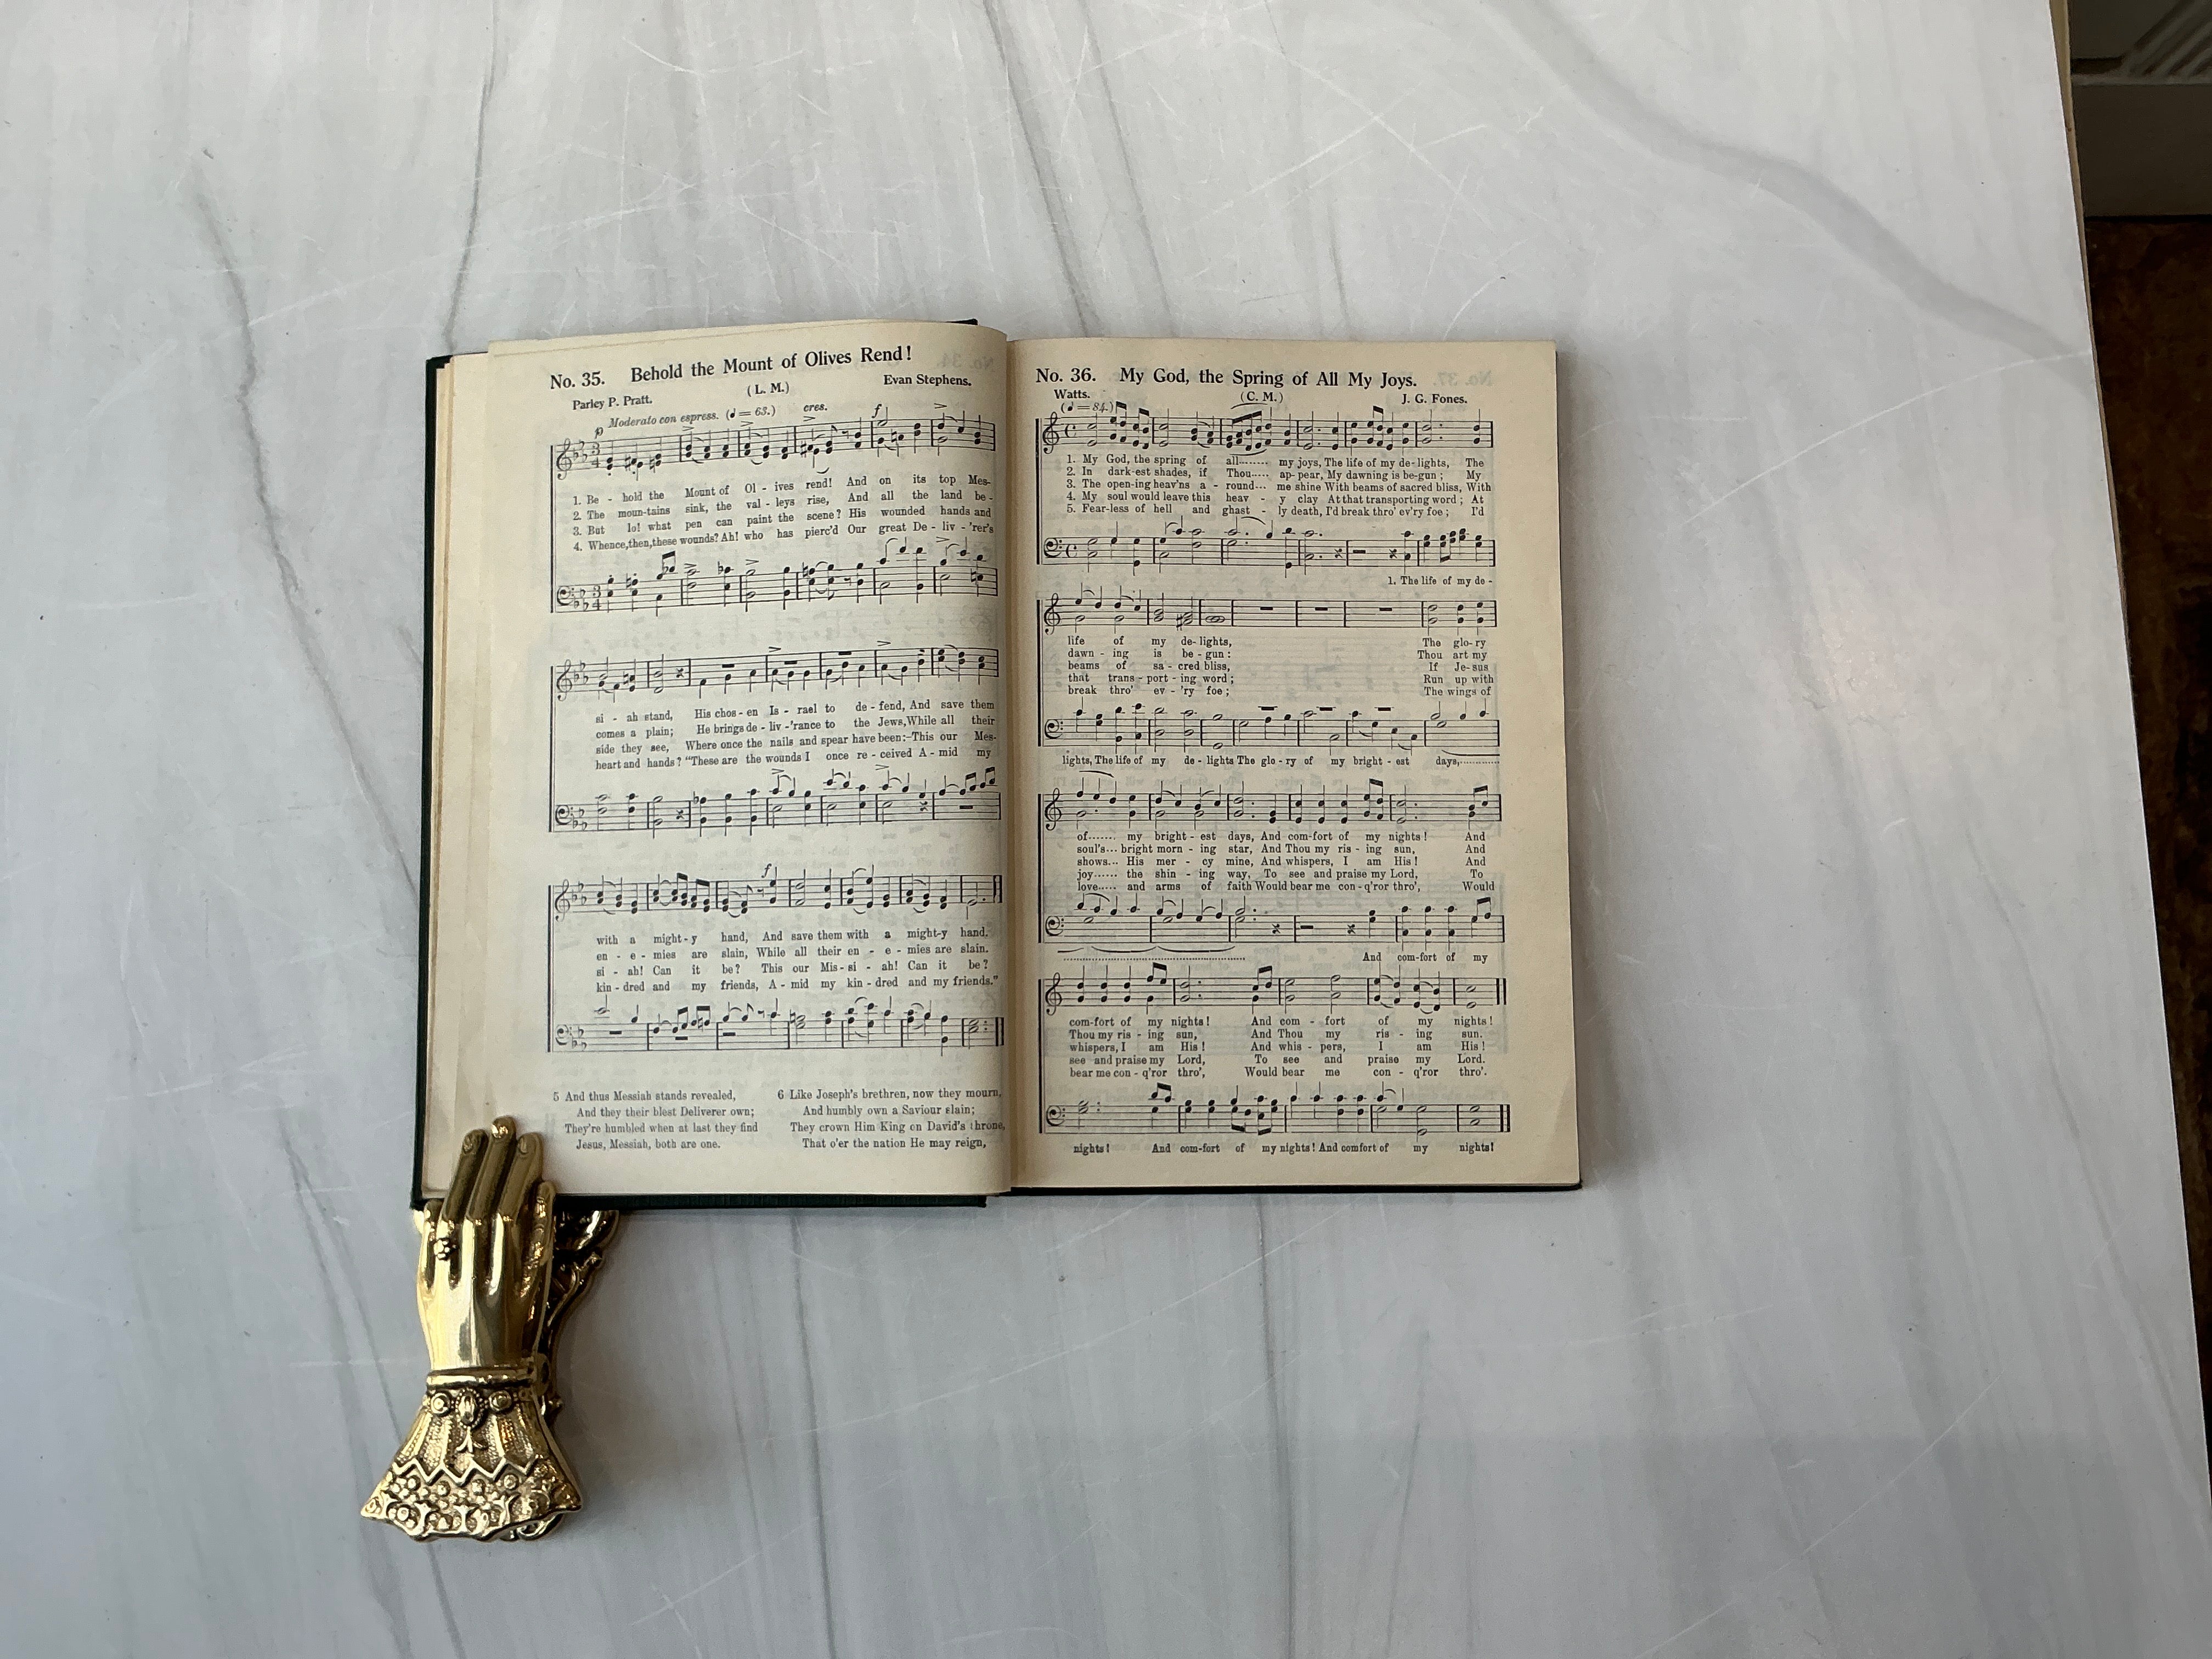 No. 35. Behold the Mount of Olives Rend!
(L. M.)
Parley P. Pratt. Evan Stephens.
Moderato con espress. (♩ = 63.) cres. f
p
1. Be - hold the Mount of Ol - ives rend! And on its top Mes-
2. The moun-tains sink, the val - leys rise, And all the land be -
3. But lo! what pen can paint the scene? His wounded hands and
4. Whence,then,these wounds? Ah! who has pierc'd Our great De - liv - 'rer's
si - ah stand, His chos - en Is - rael to de - fend, And save them
comes a plain; He brings de - liv -'rance to the Jews,While all their
side they see, Where once the nails and spear have been:–This our Mes-
heart and hands? "These are the wounds I once re - ceived A - mid my
f
with a might - y hand, And save them with a might-y hand.
en - e - mies are slain, While all their en - e - mies are slain.
si - ah! Can it be? This our Mis - si - ah! Can it be?
kin - dred and my friends, A - mid my kin - dred and my friends."
5 And thus Messiah stands revealed,
And they their blest Deliverer own;
They're humbled when at last they find
Jesus, Messiah, both are one.
6 Like Joseph's brethren, now they mourn,
And humbly own a Saviour slain;
They crown Him King on David's throne,
That o'er the nation He may reign,
No. 36. My God, the Spring of All My Joys.
Watts. (C. M.) J. G. Fones.
(♩ = 84.)
1. My God, the spring of all........ my joys, The life of my de-lights, The
2. In dark-est shades, if Thou..... ap-pear, My dawning is be-gun; My
3. The open-ing heav'ns a - round... me shine With beams of sacred bliss, With
4. My soul would leave this heav - y clay At that transporting word; At
5. Fear-less of hell and ghast - ly death, I'd break thro' ev'ry foe; I'd
1. The life of my de -
life of my de-lights, The glo-ry
dawn - ing is be - gun: Thou art my
beams of sa - cred bliss, If Je-sus
that trans - port - ing word; Run up with
break thro' ev - 'ry foe; The wings of
lights, The life of my de - lights The glo - ry of my bright - est days,............
of....... my bright - est days, And com-fort of my nights! And
soul's... bright morn - ing star, And Thou my ris - ing sun, And
shows... His mer - cy mine, And whispers, I am His! And
joy...... the shin - ing way, To see and praise my Lord, To
love..... and arms of faith Would bear me con - q'ror thro', Would
And com-fort of my
com-fort of my nights! And com - fort of my nights!
Thou my ris - ing sun, And Thou my ris - ing sun.
whispers, I am His! And whis - pers, I am His!
see and praise my Lord, To see and praise my Lord.
bear me con - q'ror thro', Would bear me con - q'ror thro'.
nights! And com-fort of my nights! And comfort of my nights!